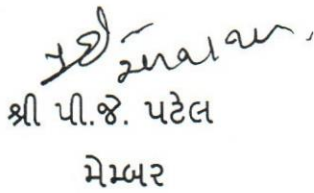 શ્રી પી.જે. પટેલ
મેમ્બર